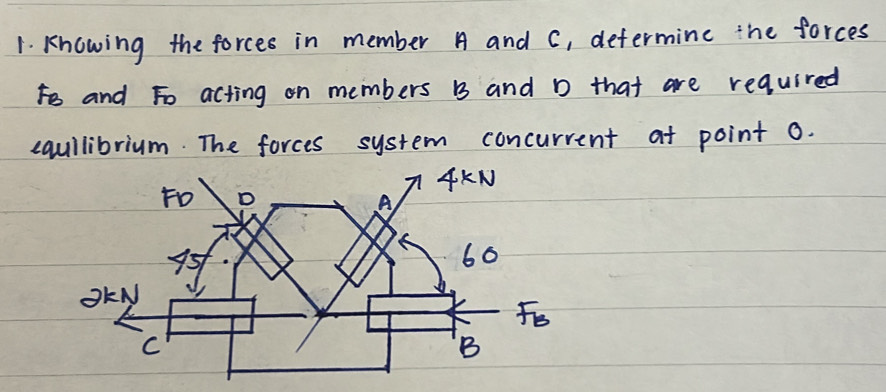 1. Knowing the forces in member A and C, determine the forces
FB and FD acting on members B and D that are required
equilibrium. The forces system concurrent at point O.
FD D A 4KN
45° 60
2KN FB
C B